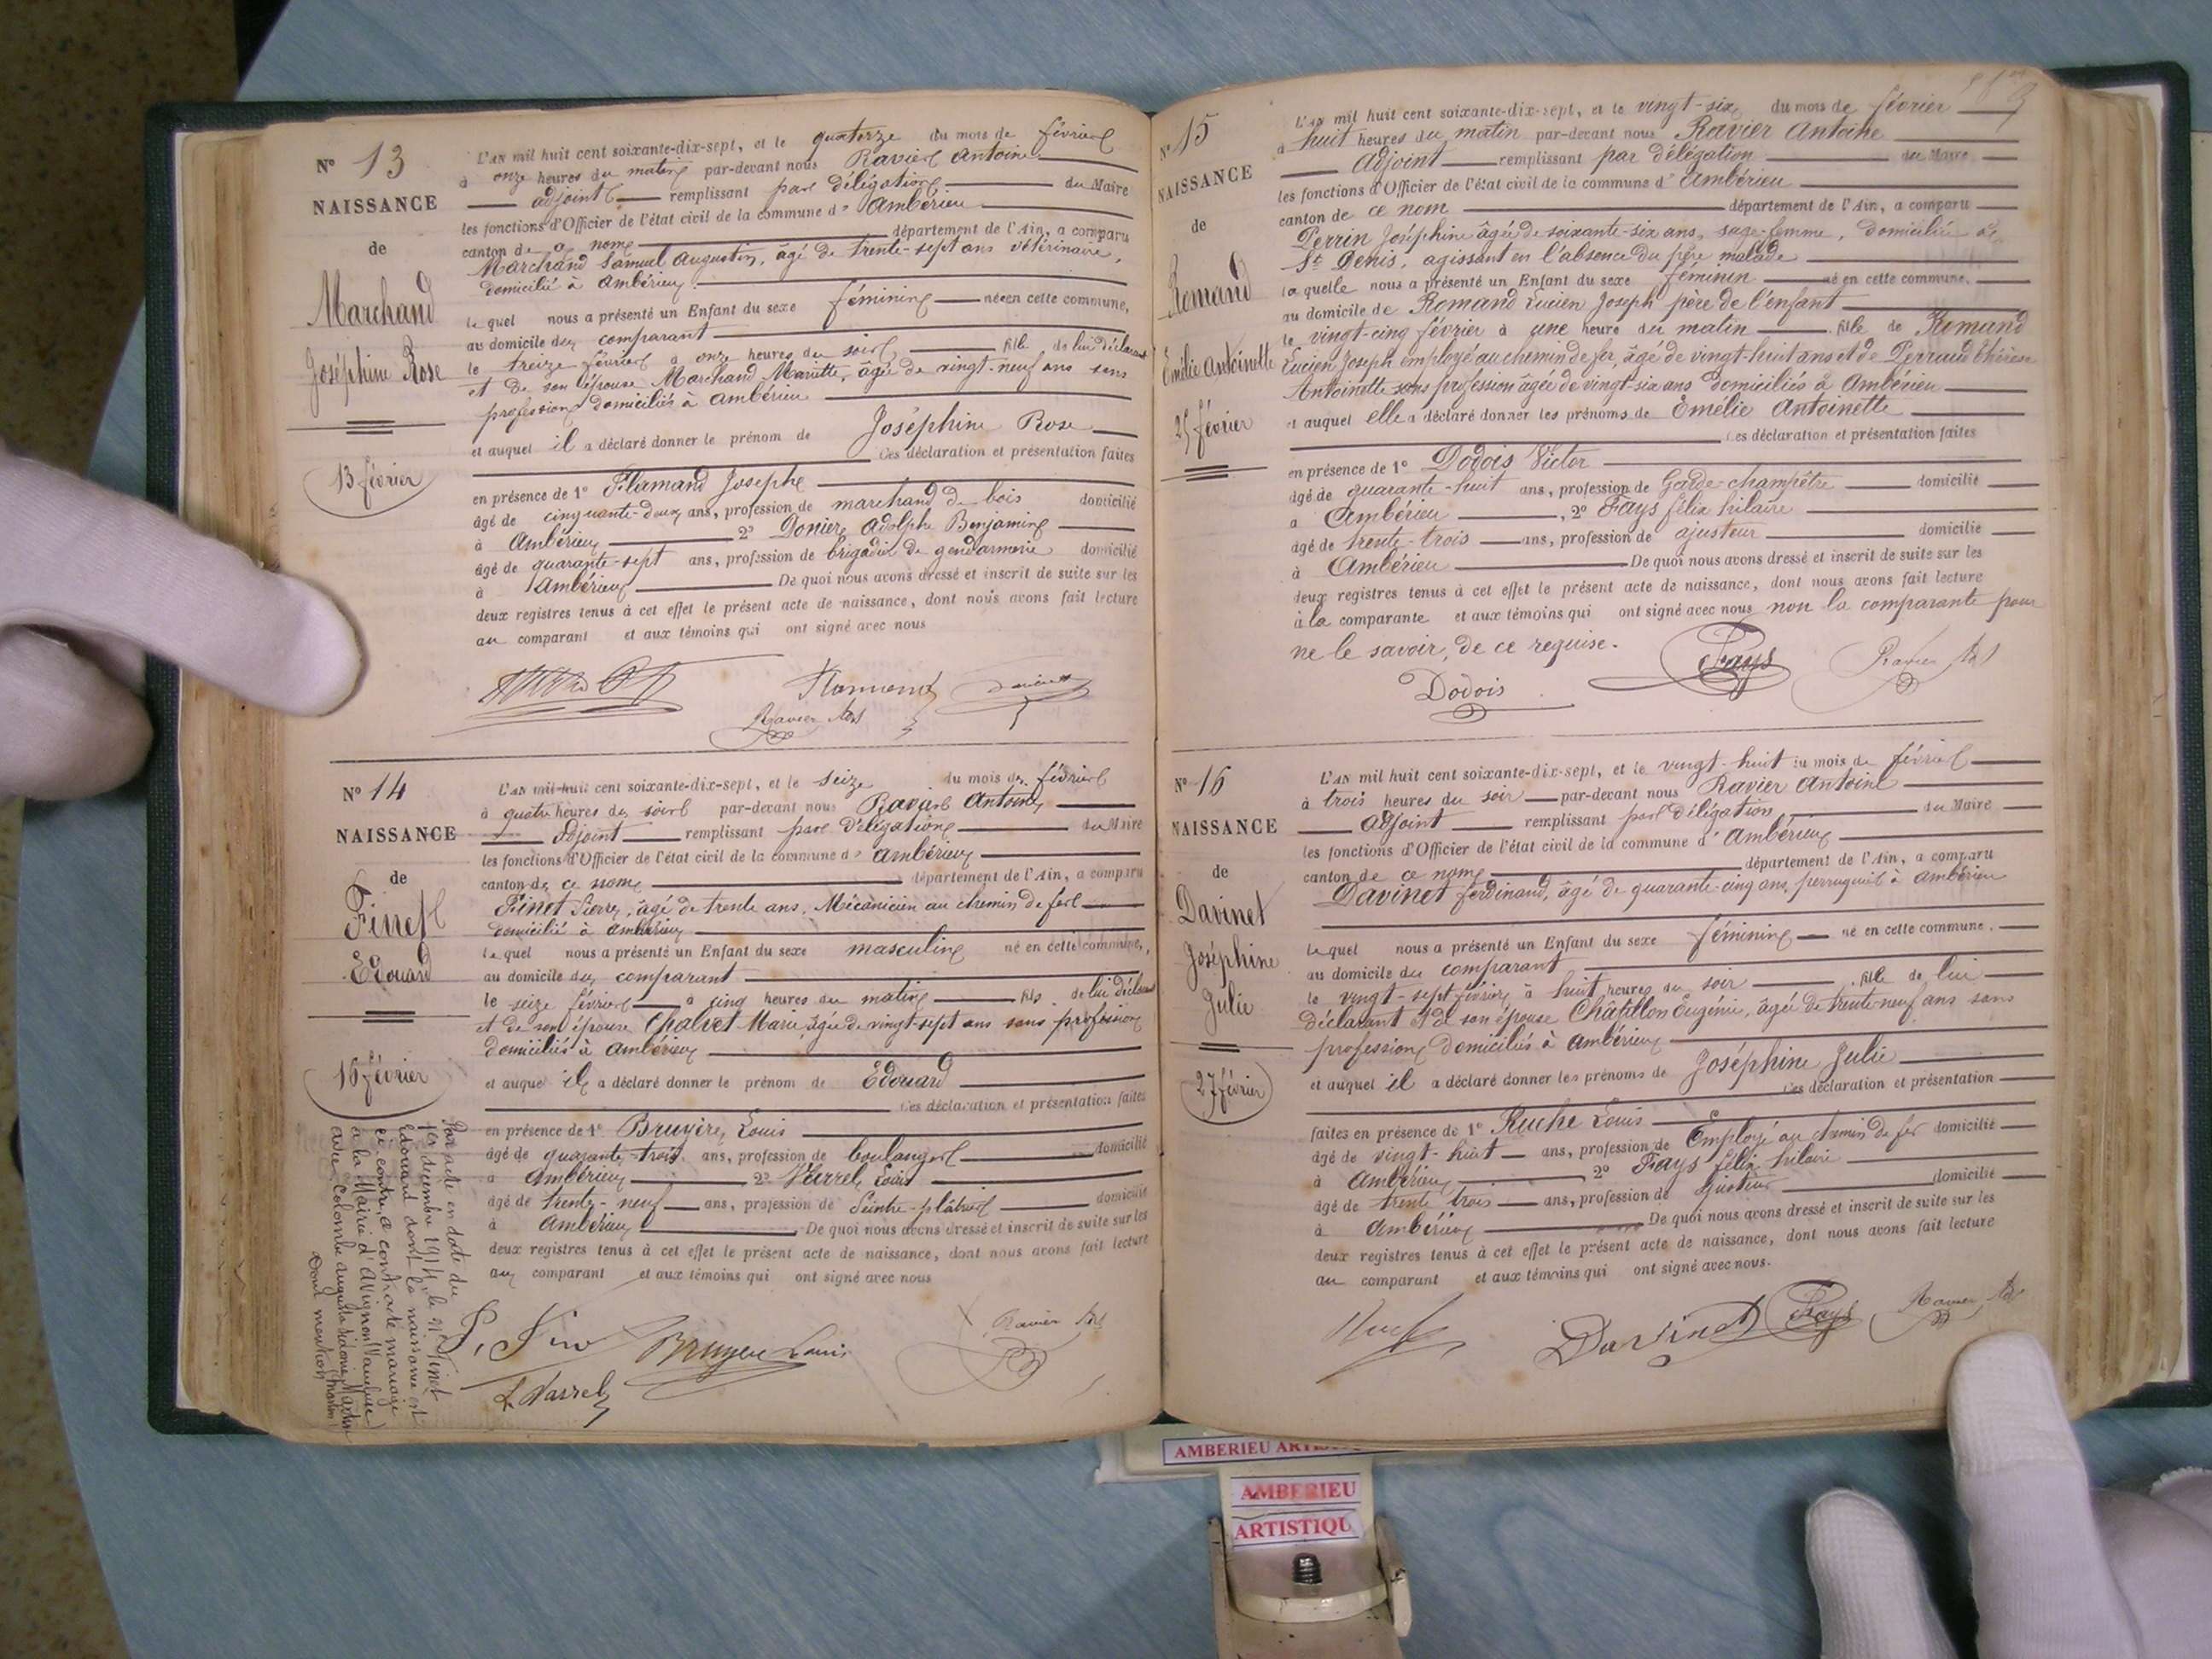 N° 13
NAISSANCE
de
Marchand
Joséphine Rose
13 février
L'AN mil huit cent soixante-dix-sept, et le quatorze du mois de février
à onze heures du matin par-devant nous Ravier Antoine
adjoint remplissant par délégation du Maire
les fonctions d'Officier de l'état civil de la commune d' Ambérieu
canton de ce nom département de l'Ain, a comparu
Marchand Samuel Augustin, âgé de trente-sept ans vétérinaire,
domicilié à Ambérieu
lequel nous a présenté un Enfant du sexe féminin née en cette commune,
au domicile du comparant
le treize février à onze heures du soir fille de lui déclarant
et de son épouse Marchand Mariette, âgée de vingt-neuf ans sans
profession domiciliés à Ambérieu
et auquel il a déclaré donner le prénom de Joséphine Rose
Ces déclaration et présentation faites
en présence de 1° Flamand Joseph
âgé de cinquante-deux ans, profession de marchand de bois domicilié
à Ambérieu 2° Donier Adolphe Benjamin
âgé de quarante-sept ans, profession de brigadier de gendarmerie domicilié
à Ambérieu De quoi nous avons dressé et inscrit de suite sur les
deux registres tenus à cet effet le présent acte de naissance, dont nous avons fait lecture
au comparant et aux témoins qui ont signé avec nous
Flamand
Ravier Adj
N° 14
NAISSANCE
de
Finet
Edouard
16 février
Par acte en date du
1er décembre 1914, le sr Finet
Edouard dont la naissance est
ci-contre, a contracté mariage
à la Mairie d'Avignon (Vaucluse)
avec Colombe Augusta
Dont mention
L'AN mil huit cent soixante-dix-sept, et le seize du mois de février
à quatre heures du soir par-devant nous Ravier Antoine
adjoint remplissant par délégation du Maire
les fonctions d'Officier de l'état civil de la commune d' Ambérieu
canton de ce nom département de l'Ain, a comparu
Finet Pierre, âgé de trente ans, Mécanicien au chemin de fer
domicilié à Ambérieu
lequel nous a présenté un Enfant du sexe masculin né en cette commune,
au domicile du comparant
le seize février à cinq heures du matin fils de lui déclarant
et de son épouse Chalvet Marie, âgée de vingt-sept ans sans profession
domiciliés à Ambérieu
et auquel il a déclaré donner le prénom de Edouard
Ces déclaration et présentation faites
en présence de 1° Bruyère, Louis
âgé de quarante-trois ans, profession de boulanger domicilié
à Ambérieu 2° Louis
âgé de trente-neuf ans, profession de Peintre-plâtrier domicilié
à Ambérieu De quoi nous avons dressé et inscrit de suite sur les
deux registres tenus à cet effet le présent acte de naissance, dont nous avons fait lecture
au comparant et aux témoins qui ont signé avec nous
Bruyere Louis
Ravier Adj
N° 15
NAISSANCE
de
Romand
Emélie Antoinette
25 février
L'AN mil huit cent soixante-dix-sept, et le vingt-six du mois de février
à huit heures du matin par-devant nous Ravier Antoine
Adjoint remplissant par délégation du Maire
les fonctions d'Officier de l'état civil de la commune d' Ambérieu
canton de ce nom département de l'Ain, a comparu
Perrin Joséphine âgée de soixante-six ans, sage-femme, domiciliée à
St Denis, agissant en l'absence du père malade
laquelle nous a présenté un Enfant du sexe féminin né en cette commune,
au domicile de Romand Lucien Joseph père de l'enfant
le vingt-cinq février à une heure du matin fille de Romand
Lucien Joseph employé au chemin de fer, âgé de vingt-huit ans et de Perraud Thérèse
Antoinette sans profession âgée de vingt-six ans domiciliés à Ambérieu
et auquel elle a déclaré donner les prénoms de Emélie Antoinette
Ces déclaration et présentation faites
en présence de 1° Dodois Victor
âgé de quarante-huit ans, profession de Garde-champêtre domicilié
à Ambérieu, 2° Fays félix hilaire
âgé de trente-trois ans, profession de ajusteur domicilié
à Ambérieu De quoi nous avons dressé et inscrit de suite sur les
deux registres tenus à cet effet le présent acte de naissance, dont nous avons fait lecture
à la comparante et aux témoins qui ont signé avec nous non la comparante pour
ne le savoir, de ce requise.
Fays
Ravier Adj
Dodois
N° 16
NAISSANCE
de
Davinet
Joséphine
Julie
27 février
L'AN mil huit cent soixante-dix-sept, et le vingt-huit du mois de février
à trois heures du soir par-devant nous Ravier Antoine
adjoint remplissant par délégation du Maire
les fonctions d'Officier de l'état civil de la commune d' Ambérieu
canton de ce nom département de l'Ain, a comparu
Davinet ferdinand, âgé de quarante-cinq ans, perruquier à Ambérieu
lequel nous a présenté un Enfant du sexe féminin né en cette commune,
au domicile du comparant
le vingt-sept février à huit heures du soir fille de lui
déclarant et de son épouse Châtillon Eugénie, âgée de trente-neuf ans sans
profession domiciliés à Ambérieu
et auquel il a déclaré donner les prénoms de Joséphine Julie
Ces déclaration et présentation
faites en présence de 1° Ruche Louis
âgé de vingt-huit ans, profession de Employé au chemin de fer domicilié
à Ambérieu 2° Fays félix hilaire
âgé de trente trois ans, profession de ajusteur domicilié
à Ambérieu De quoi nous avons dressé et inscrit de suite sur les
deux registres tenus à cet effet le présent acte de naissance, dont nous avons fait lecture
au comparant et aux témoins qui ont signé avec nous.
Davinet
Fays
Ravier Adj
AMBERIEU
AMBERIEU
ARTISTIQU